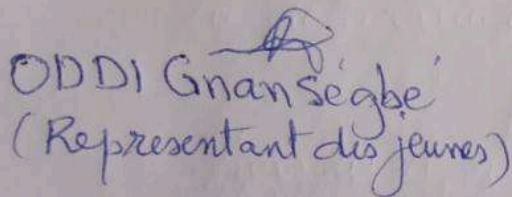 ODDI Gnanségbé
(Representant des jeunes)